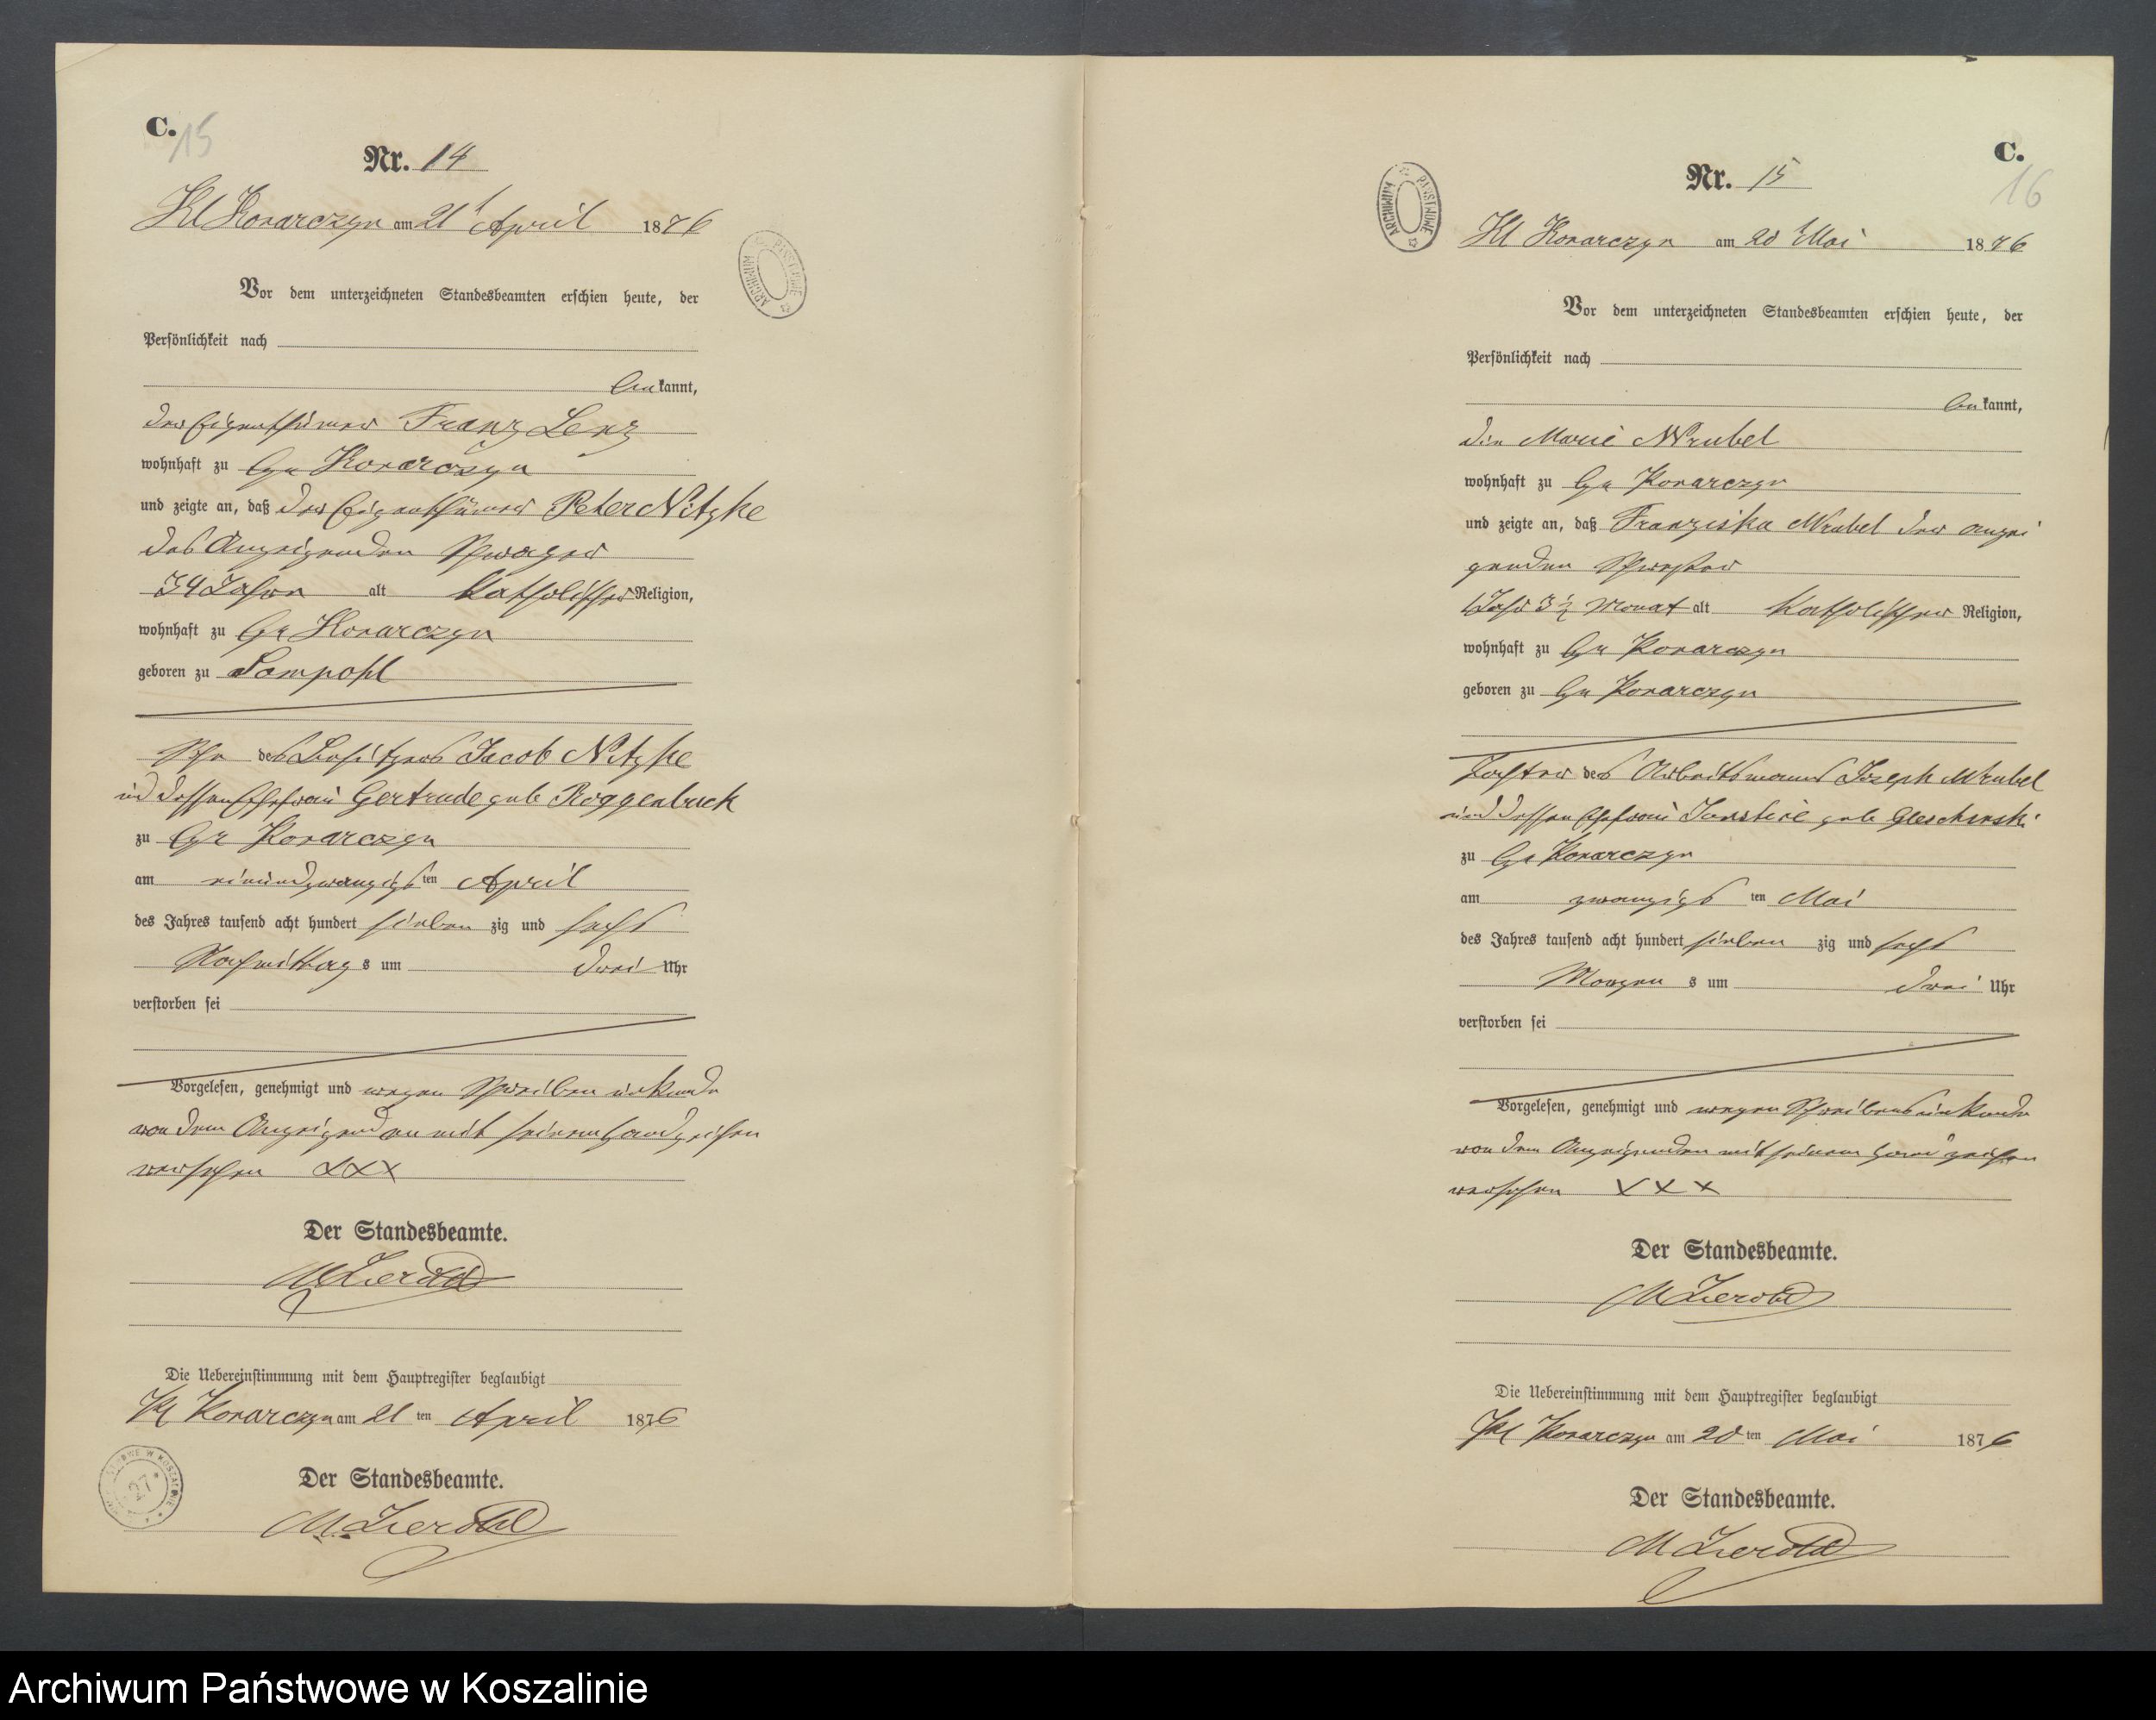 C. 15
Nr. 14
Kl Konarczyn am 21t April 1876
Vor dem unterzeichneten Standesbeamten erschien heute, der
Persönlichkeit nach
be kannt,
der Eigenthümer Franz Lenz
wohnhaft zu Gr Konarczyn
und zeigte an, daß der Eigenthümer Peter Nitzke
des Anzeigenden Schwager
34 Jahre alt katholischer Religion,
wohnhaft zu Gr Konarczyn
geboren zu Sampohl
Sohn des Besitzers Jacob Nitzke
und dessen Ehefrau Gertrude geb Roggenbuck
zu Gr Konarczyn
am einundzwanzigs ten April
des Jahres tausend acht hundert sieben zig und sechs
Nachmittag s um drei Uhr
verstorben sei
Vorgelesen, genehmigt und wegen Schreibenunkunde
von dem Anzeigenden mit seinem Handzeichen
versehen XXX
Der Standesbeamte.
M Zierold
Die Uebereinstimmung mit dem Hauptregister beglaubigt
Kl Konarczyn am 21 ten April 1876
Der Standesbeamte.
M. Zierold
ARCHIWUM PAŃSTWOWE
27
C.
16
Nr. 15
ARCHIWUM PAŃSTWOWE
Kl Konarczyn am 20t Mai 1876
Vor dem unterzeichneten Standesbeamten erschien heute, der
Persönlichkeit nach
be kannt,
die Marie Wrubel
wohnhaft zu Gr Konarczyn
und zeigte an, daß Franziska Wrubel der anzei
genden Schwester
1 Jahr 3½ Monat alt katholischer Religion,
wohnhaft zu Gr Konarczyn
geboren zu Gr Konarczyn
Tochter des Arbeitsmanns Joseph Wrubel
und dessen Ehefrau geb
zu Gr Konarczyn
am zwanzigs ten Mai
des Jahres tausend acht hundert sieben zig und sechs
Morgen s um drei Uhr
verstorben sei
Vorgelesen, genehmigt und wegen Schreibensunkunde
von dem Anzeigenden mit seinem Handzeichen
versehen XXX
Der Standesbeamte.
M Zierold
Die Uebereinstimmung mit dem Hauptregister beglaubigt
Kl Konarczyn am 20 ten Mai 1876
Der Standesbeamte.
M Zierold
Archiwum Państwowe w Koszalinie